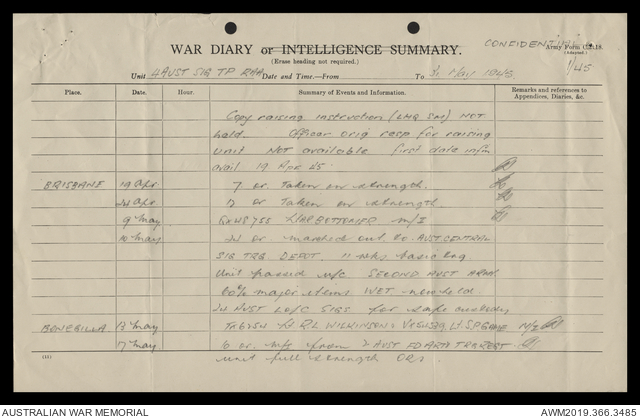 CONFIDENTIAL
WAR DIARY or INTELLIGENCE SUMMARY.
Army Form C.2118.
(Erase heading not required.)
(Adapted.)
1/45
Unit 4 AUST SIG TP RAA Date and Time.—From To 31 May 1945.
Place. Date. Hour. Summary of Events and Information. Remarks and references to Appendices, Diaries, &c.
Copy raising instruction (LHQ SM) NOT
held. Officer orig resp for raising
unit NOT available first date infm
avail 19 Apr 45.
BRISBANE 19 Apr. 7 or taken on strength.
24 Apr. or taken on strength
9 May Lieut M/I
10 May 24 or. marched out to AUST CENTRAL
SIG TRG DEPOT. 11 wks basic trg
Unit passed SECOND AUST ARMY
60% major items WET - now held
24 AUST L of C SIGS for safe custody
BONEGILLA 13 May Lt R L WILKINSON Lt. S.P. M/I
17 May 6 or. from 2 AUST FD ARTY TRG REGT
unit full strength ORs.
(11)
AUSTRALIAN WAR MEMORIAL
AWM2019.366.3485